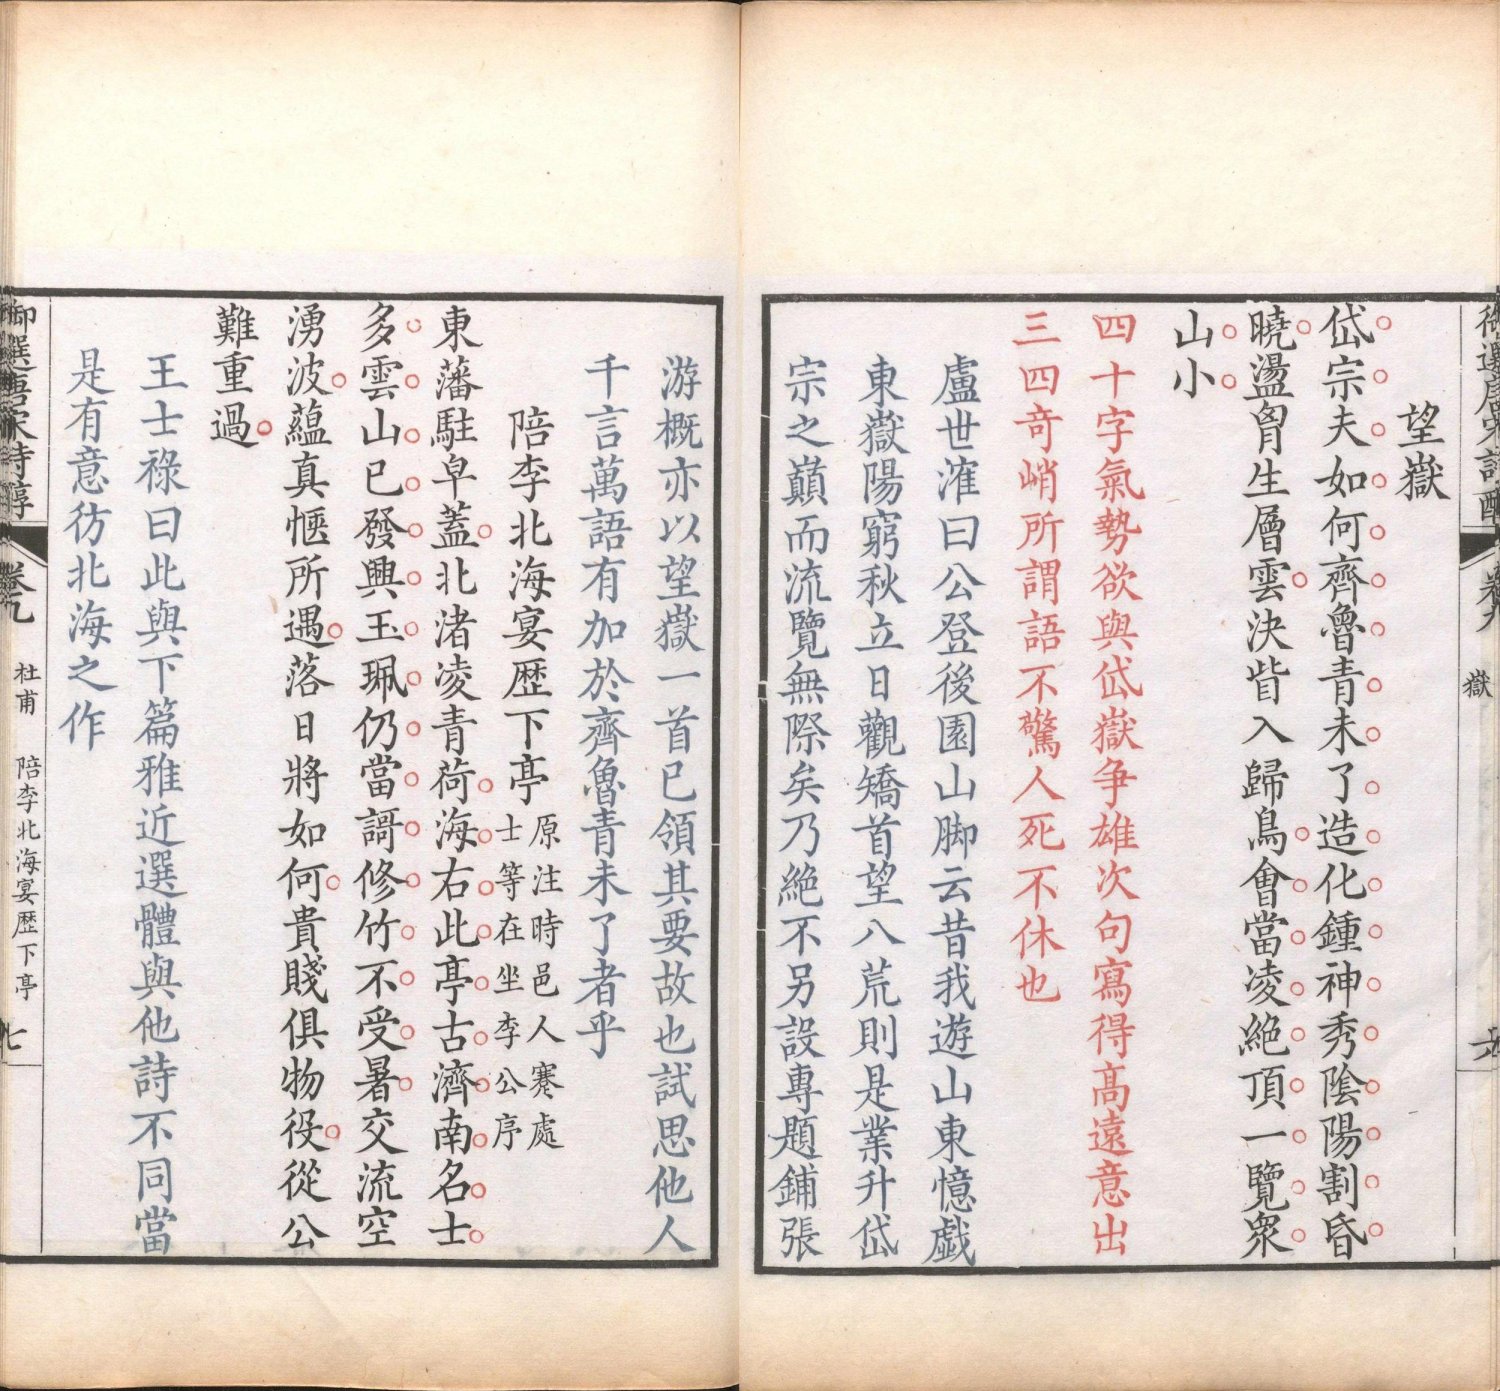 望嶽
岱宗夫如何齊魯青未了造化鍾神秀陰陽割昏
曉盪胷生層雲決眥入歸鳥會當凌絶頂一覽衆
山小
四十字氣勢欲與岱嶽争雄次句寫得高遠意出
三四奇峭所謂語不驚人死不休也
盧世㴶曰公登後園山脚云昔我遊山東憶戯
東嶽陽窮秋立日觀矯首望八荒則是業升岱
宗之巔而流覽無際矣乃絶不另設專題鋪張
御選唐宋詩醇
卷九
嶽
六
游概亦以望嶽一首已領其要故也試思他人
千言萬語有加於齊魯青未了者乎
陪李北海宴歷下亭
原注時邑人蹇處
士等在坐李公序
東藩駐皁蓋北渚凌青荷海右此亭古濟南名士
多雲山已發興玉珮仍當謌修竹不受暑交流空
湧波蘊真愜所遇落日將如何貴賤俱物役從公
難重過
王士祿曰此與下篇雅近選體與他詩不同當
是有意彷北海之作
御選唐宋詩醇
卷九
杜甫 陪李北海宴歷下亭
七